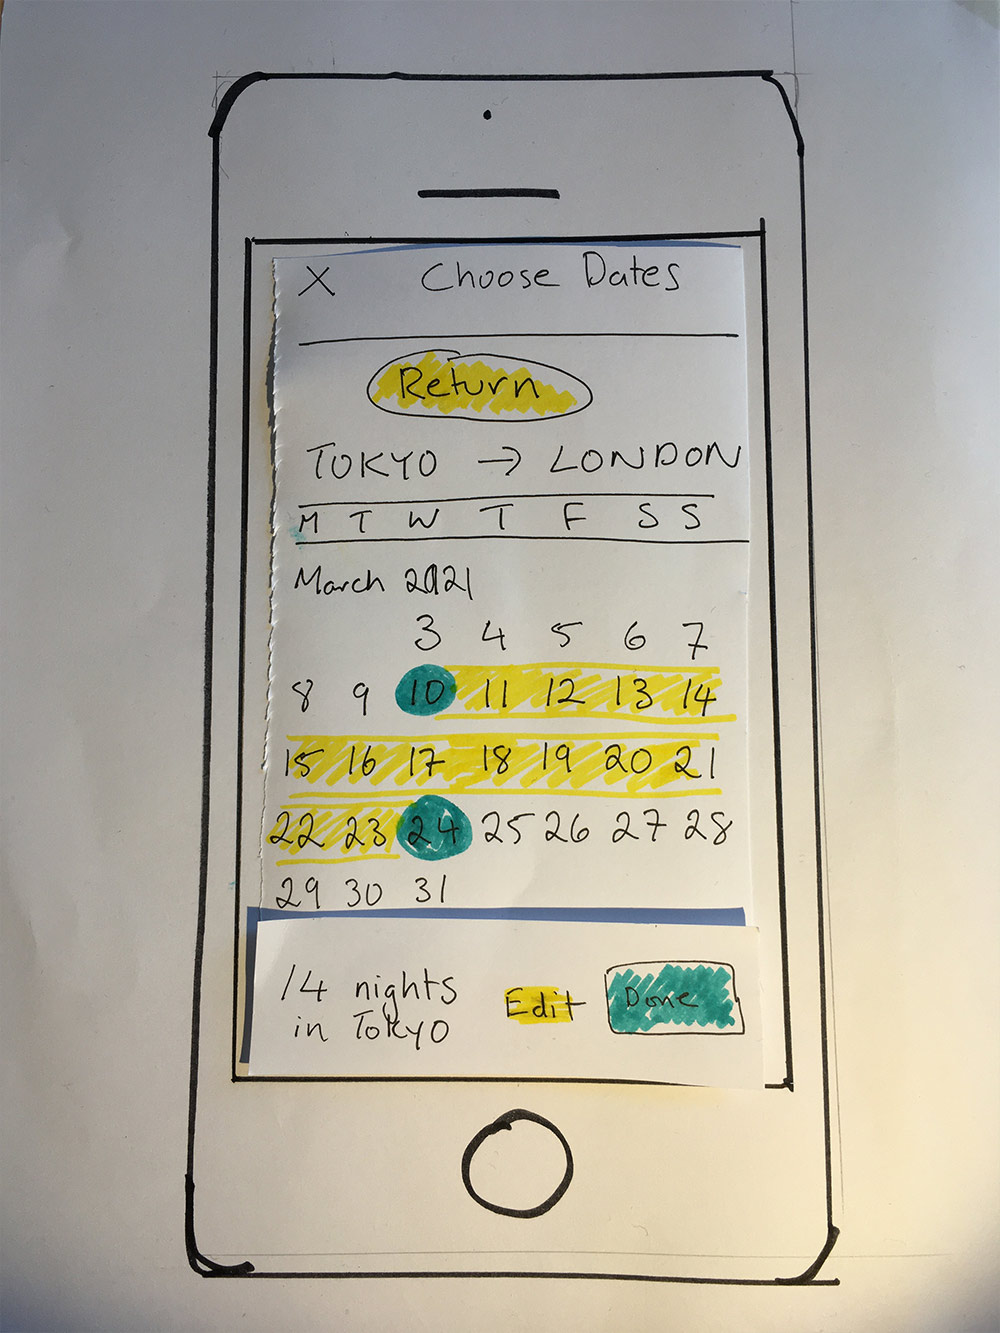 X Choose Dates
Return
TOKYO → LONDON
M T W T F S S
March 2021
3 4 5 6 7
8 9 10 11 12 13 14
15 16 17 18 19 20 21
22 23 24 25 26 27 28
29 30 31
14 nights
in Tokyo
Edit
Done